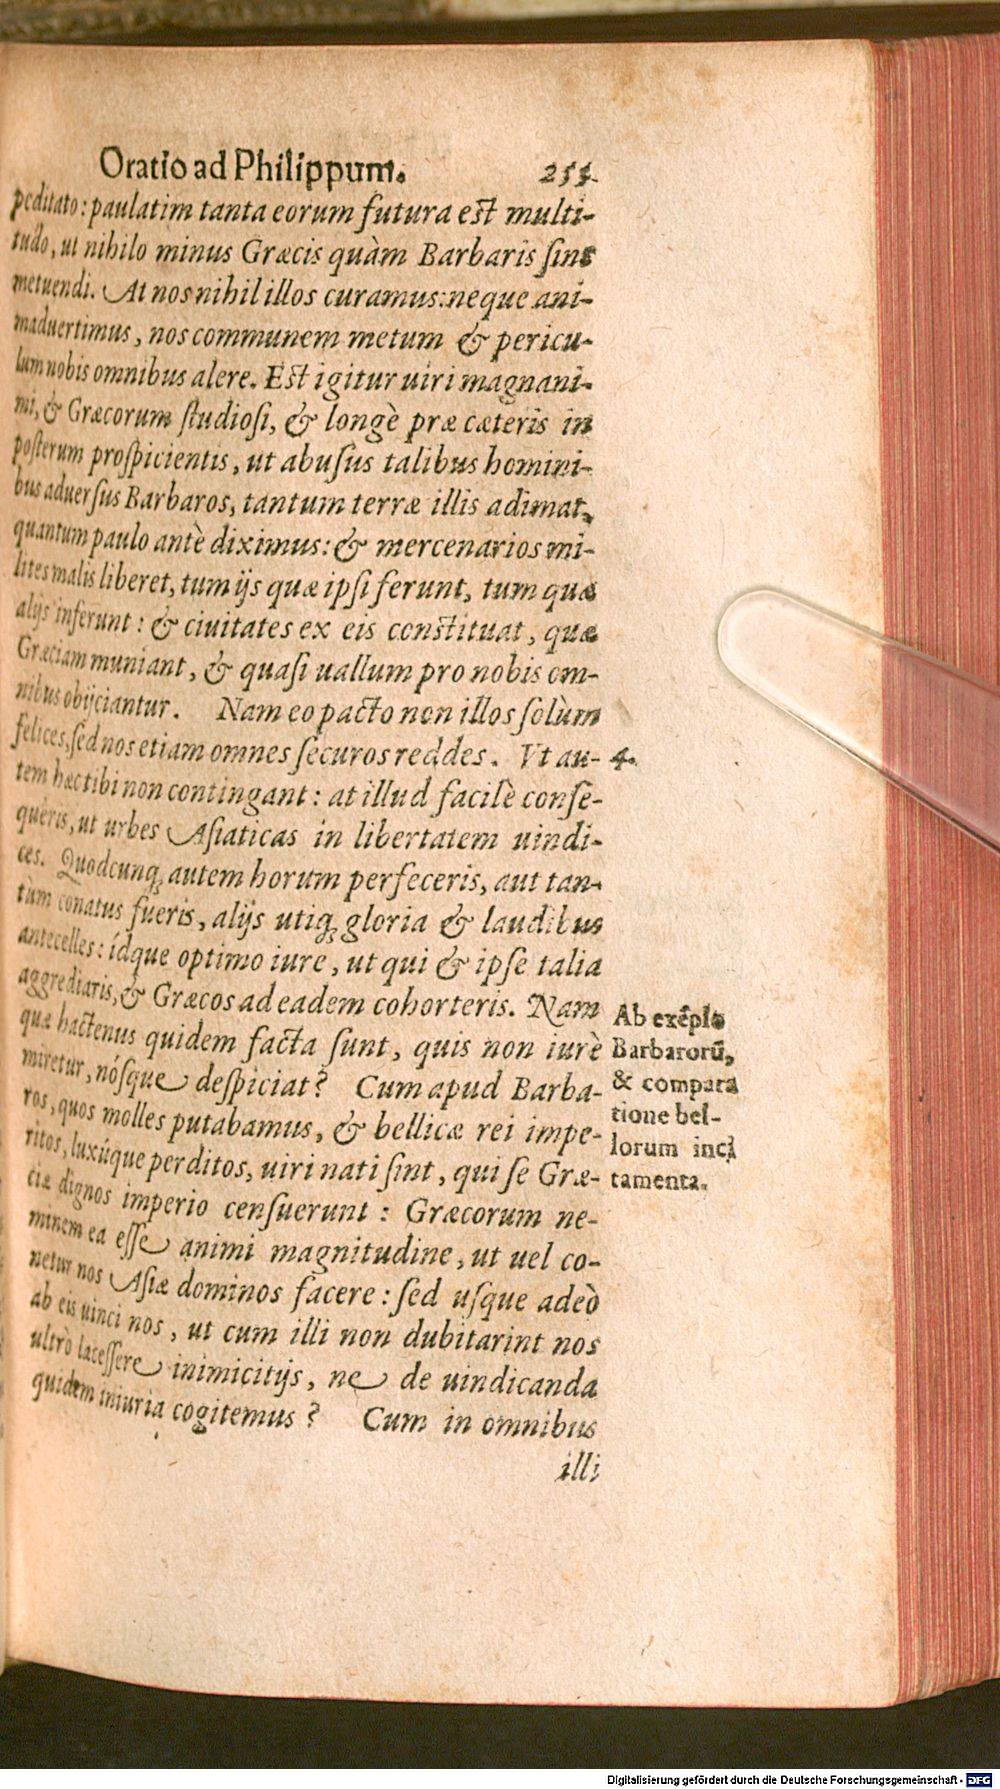 Oratio ad Philippum. 255.
peditato: paulatim tanta eorum futura est multi-
tudo, ut nihilo minus Græcis quàm Barbaris sint
metuendi. At nos nihil illos curamus: neque ani-
maduertimus, nos communem metum & pericu-
lum nobis omnibus alere. Est igitur uiri magnani-
mi, & Græcorum studiosi, & longè præ cæteris in
posterum prospicientis, ut abusus talibus homini-
bus aduersus Barbaros, tantum terræ illis adimat,
quantum paulo antè diximus: & mercenarios mi-
lites malis liberet, tum ijs quæ ipsi ferunt, tum quæ
alijs inferunt: & ciuitates ex eis constituat, quæ
Græciam muniant, & quasi uallum pro nobis om-
nibus obijciantur. Nam eo pacto non illos solùm
felices, sed nos etiam omnes securos reddes. Vt au- 4.
tem hæc tibi non contingant: at illud facilè conse-
queris, ut urbes Asiaticas in libertatem uindi-
ces. Quodcunq; autem horum perfeceris, aut tan-
tùm conatus fueris, alijs utiq; gloria & laudibus
antecelles: ídque optimo iure, ut qui & ipse talia
aggrediaris, & Græcos ad eadem cohorteris. Nam
quæ hactenus quidem facta sunt, quis non iurè
miretur, nósque despiciat? Cum apud Barba-
ros, quos molles putabamus, & bellicæ rei impe-
ritos, luxúque perditos, uiri nati sint, qui se Græ-
ciæ dignos imperio censuerunt: Græcorum ne-
minem ea esse animi magnitudine, ut uel co-
netur nos Asiæ dominos facere: sed usque adeò
ab eis uinci nos, ut cum illi non dubitarint nos
ultrò lacessere inimicitijs, ne de uindicanda
quidem iniuria cogitemus? Cum in omnibus
illi
Ab exẽplo
Barbarorũ,
& compara
tione bel-
lorum inci
tamenta.
Digitalisierung gefördert durch die Deutsche Forschungsgemeinschaft - DFG